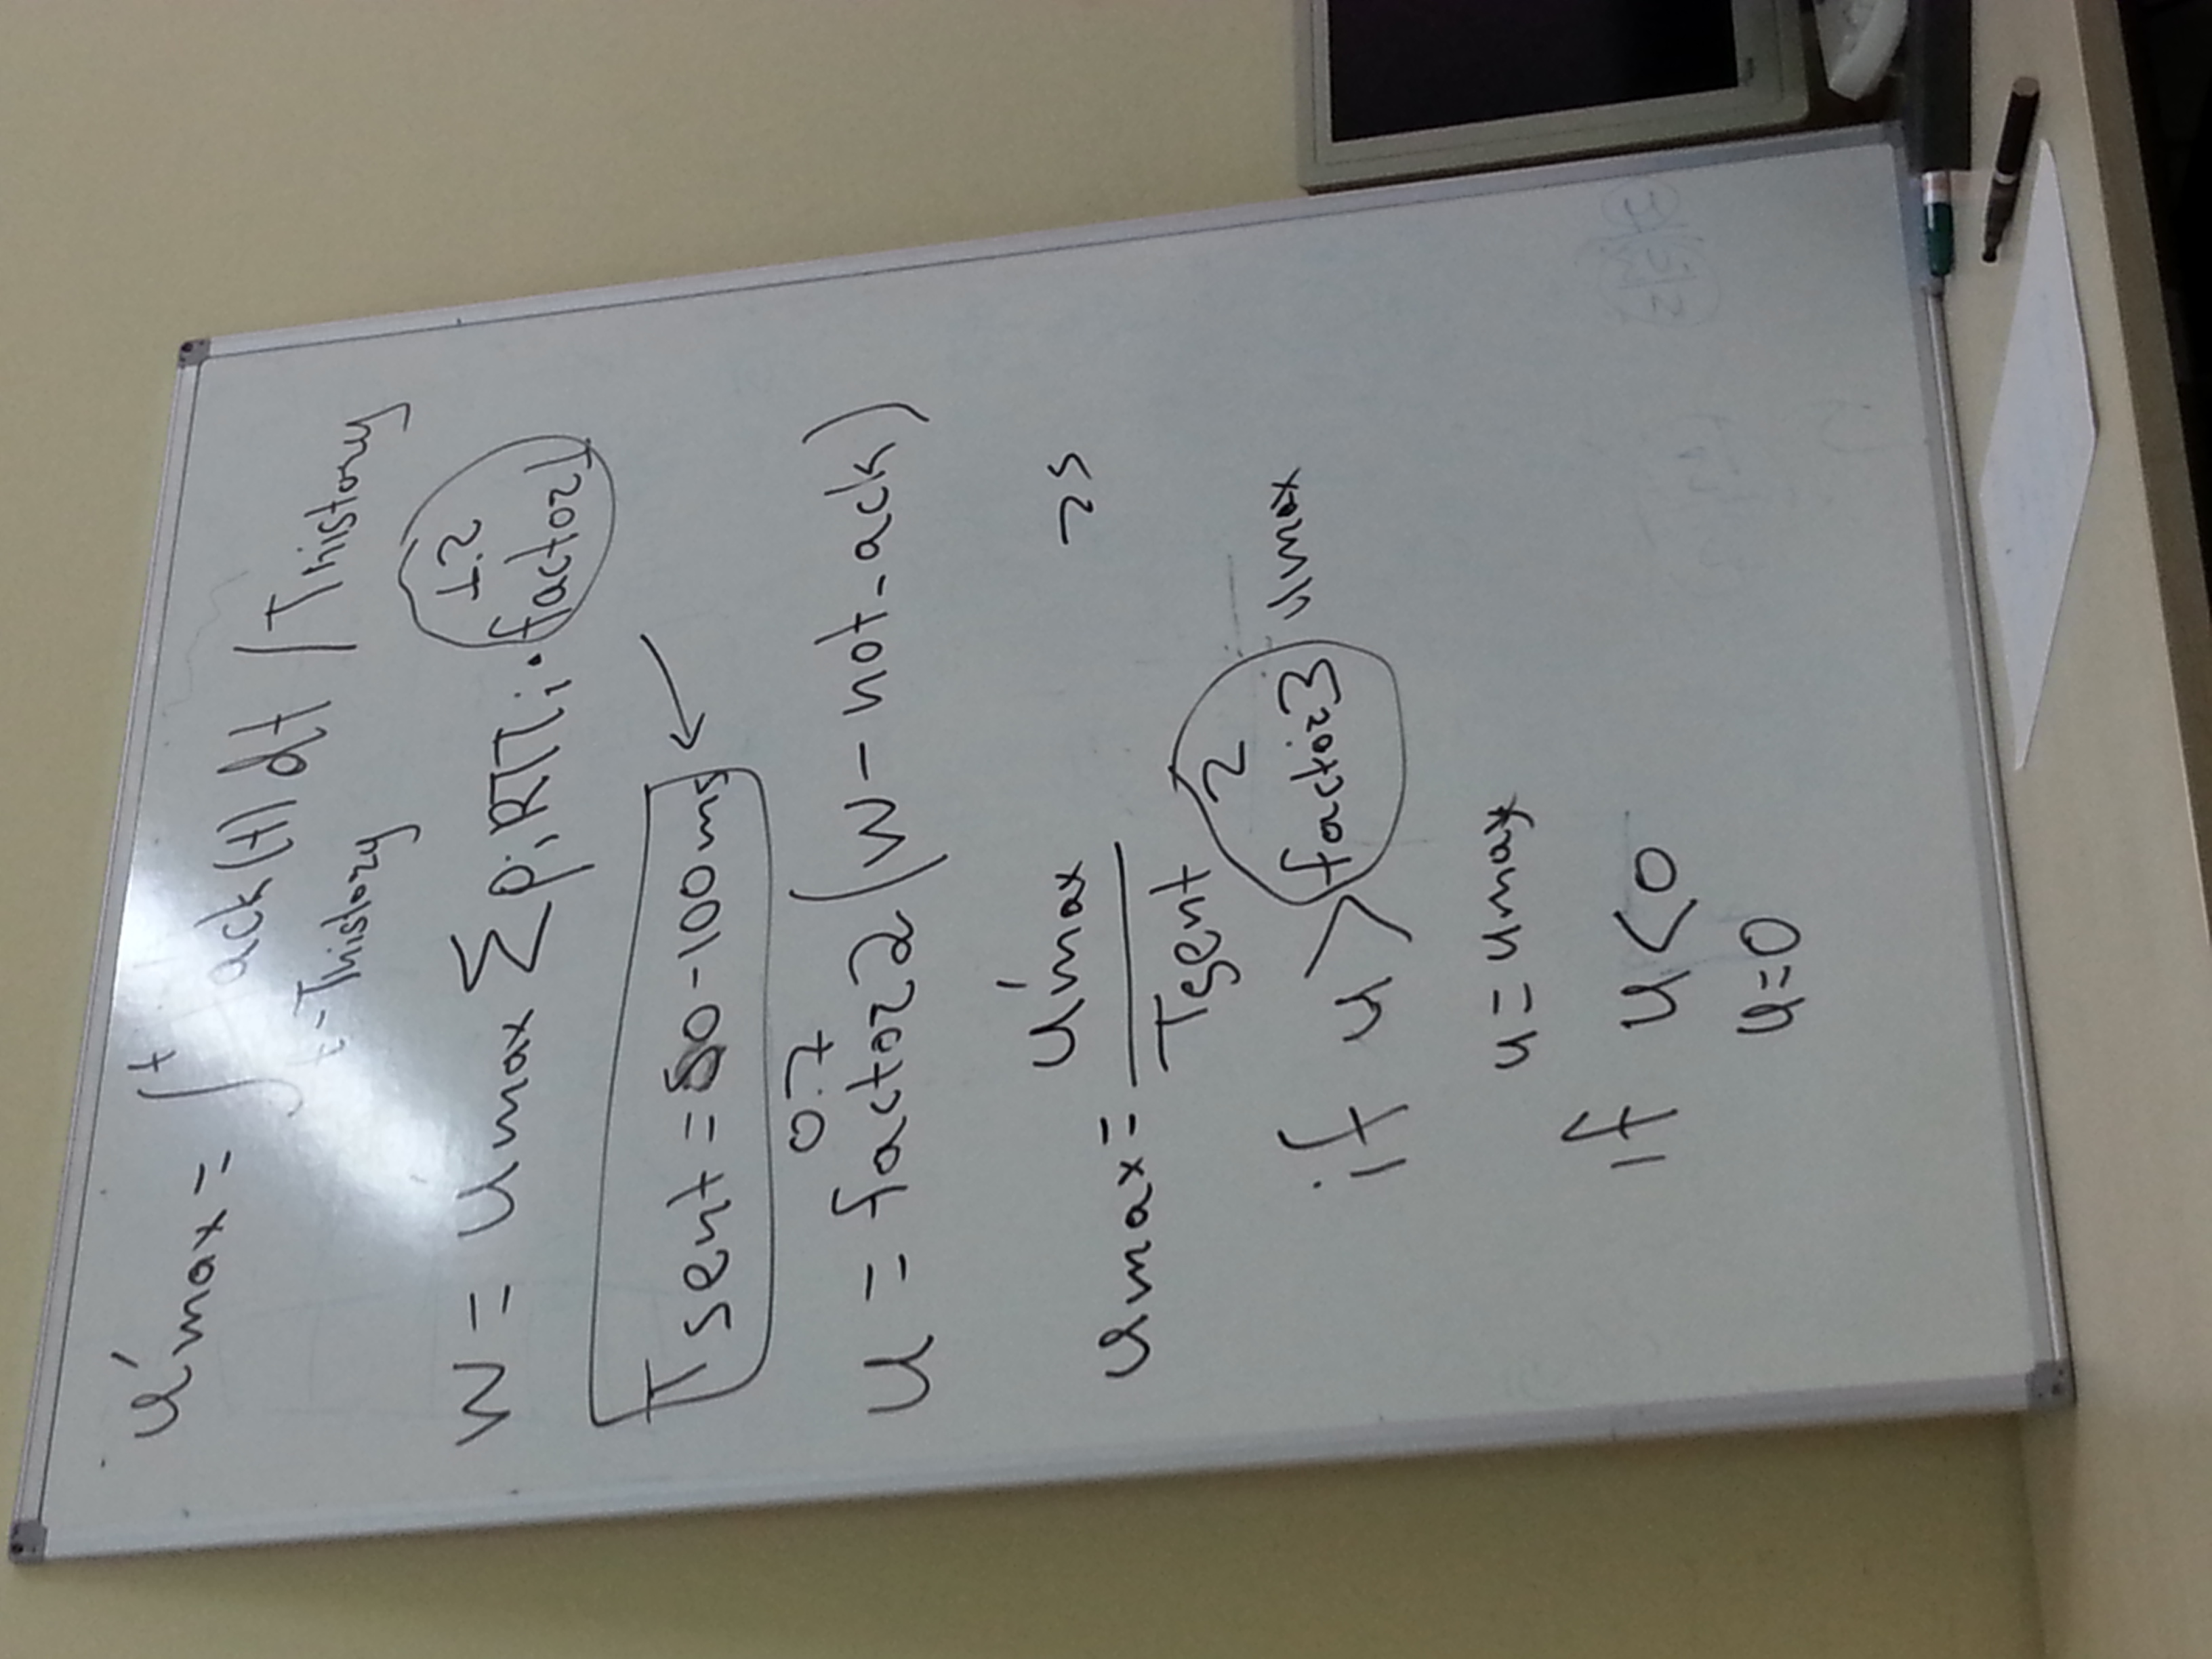 u'max = ∫ t ack(t) dt / Thistory
t-Thistory
1.2
W = Umax Σ pi RTTi · factor1
Tsent = 50-100ms ←
0.7
u = factor2 (W - not_ack)
u'max
umax = ——— 2s
Tsent
2
if u > factor3 umax
u = umax
if u < 0
u = 0